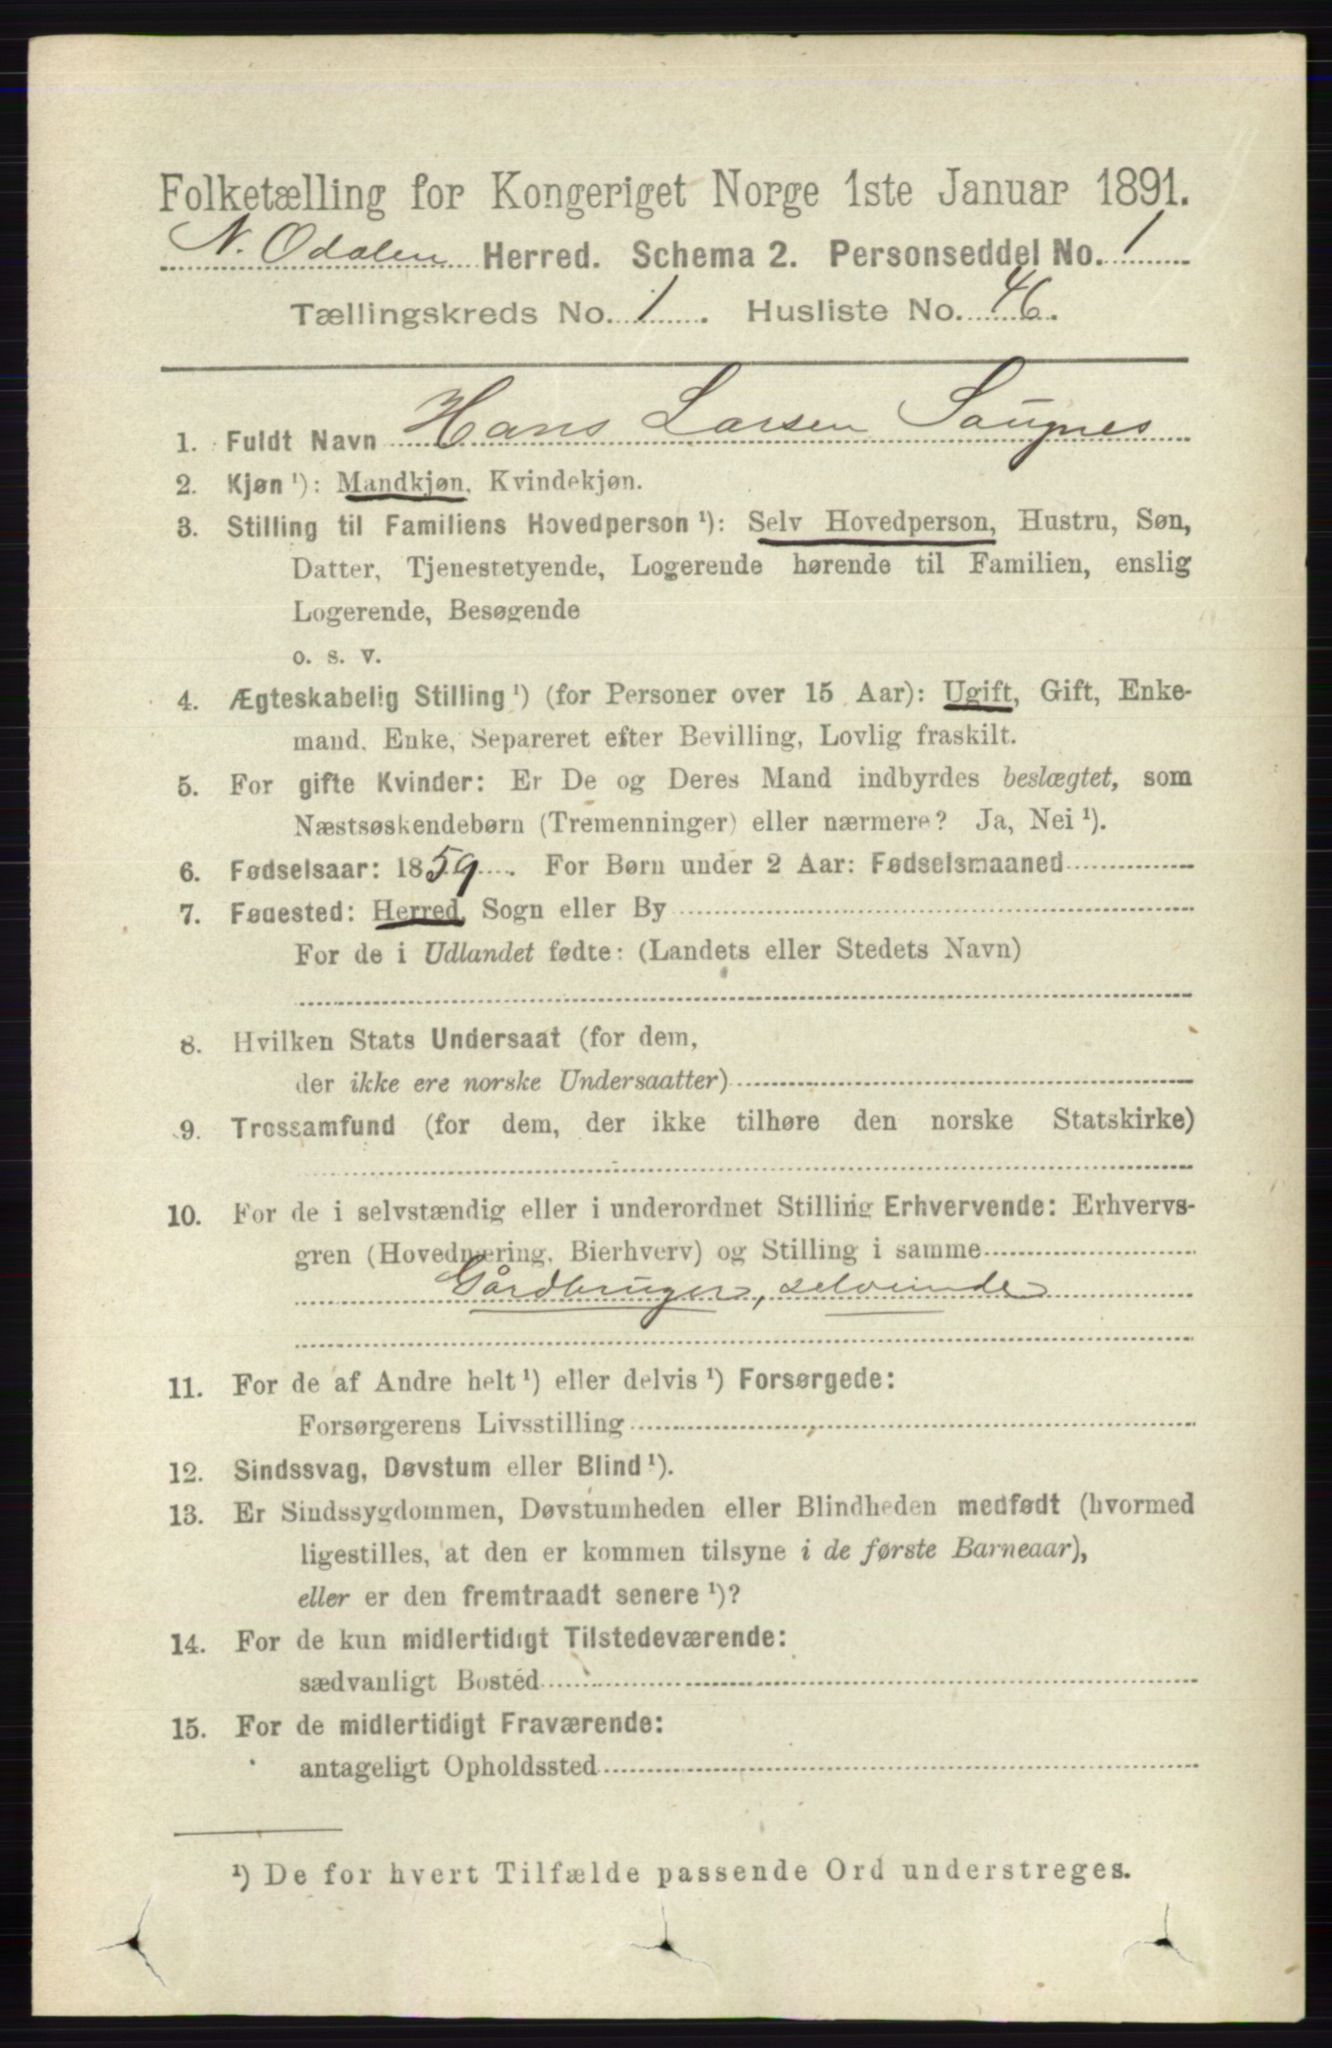 Folketælling for Kongeriget Norge 1ste Januar 1891.
N. Odalen Herred. Schema 2. Personseddel No. 1
Tællingskreds No. 1. Husliste No. 46.
1. Fuldt Navn Hans Larsen Saugnes
2. Kjøn ¹): Mandkjøn, Kvindekjøn.
3. Stilling til Familiens Hovedperson ¹): Selv Hovedperson, Hustru, Søn,
Datter, Tjenestetyende, Logerende hørende til Familien, enslig
Logerende, Besøgende
o. s. v.
4. Ægteskabelig Stilling ¹) (for Personer over 15 Aar): Ugift, Gift, Enke-
mand, Enke, Separeret efter Bevilling, Lovlig fraskilt.
5. For gifte Kvinder: Er De og Deres Mand indbyrdes beslægtet, som
Næstsøskendebørn (Tremenninger) eller nærmere? Ja, Nei ¹).
6. Fødselsaar: 1859. For Børn under 2 Aar: Fødselsmaaned
7. Fødested: Herred, Sogn eller By
For de i Udlandet fødte: (Landets eller Stedets Navn)
8. Hvilken Stats Undersaat (for dem,
der ikke ere norske Undersaatter)
9. Trossamfund (for dem, der ikke tilhøre den norske Statskirke)
10. For de i selvstændig eller i underordnet Stilling Erhvervende: Erhvervs-
gren (Hovednæring, Bierhverv) og Stilling i samme
Gårdbruger, selveiende
11. For de af Andre helt ¹) eller delvis ¹) Forsørgede:
Forsørgerens Livsstilling
12. Sindssvag, Døvstum eller Blind ¹).
13. Er Sindssygdommen, Døvstumheden eller Blindheden medfødt (hvormed
ligestilles, at den er kommen tilsyne i de første Barneaar),
eller er den fremtraadt senere ¹)?
14. For de kun midlertidigt Tilstedeværende:
sædvanligt Bosted
15. For de midlertidigt Fraværende:
antageligt Opholdssted
¹) De for hvert Tilfælde passende Ord understreges.